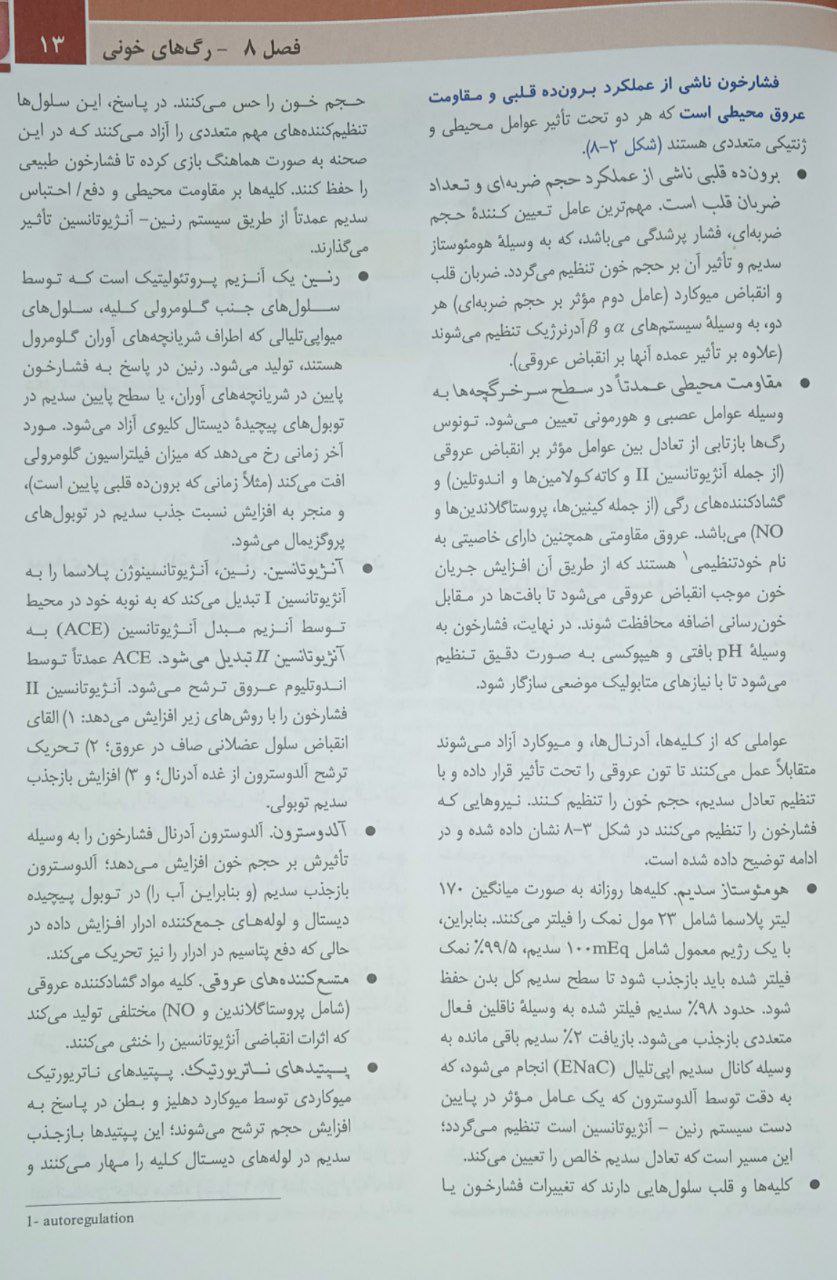 فصل ۸ - رگ‌های خونی
۱۳
فشارخون ناشی از عملکرد برون‌ده قلبی و مقاومت
عروق محیطی است که هر دو تحت تأثیر عوامل محیطی و
ژنتیکی متعددی هستند (شکل ۲-۸).
● برون‌ده قلبی ناشی از عملکرد حجم ضربه‌ای و تعداد
ضربان قلب است. مهم‌ترین عامل تعیین کنندهٔ حجم
ضربه‌ای، فشار پرشدگی می‌باشد، که به وسیلهٔ هومئوستاز
سدیم و تأثیر آن بر حجم خون تنظیم می‌گردد. ضربان قلب
و انقباض میوکارد (عامل دوم مؤثر بر حجم ضربه‌ای) هر
دو، به وسیلهٔ سیستم‌های α و β آدرنرژیک تنظیم می‌شوند
(علاوه بر تأثیر عمده آنها بر انقباض عروقی).
● مقاومت محیطی عمدتاً در سطح سرخرگچه‌ها به
وسیله عوامل عصبی و هورمونی تعیین می‌شود. تونوس
رگ‌ها بازتابی از تعادل بین عوامل مؤثر بر انقباض عروقی
(از جمله آنژیوتانسین II و کاته‌کولامین‌ها و اندوتلین) و
گشادکننده‌های رگی (از جمله کینین‌ها، پروستاگلاندین‌ها و
NO) می‌باشد. عروق مقاومتی همچنین دارای خاصیتی به
نام خودتنظیمی۱ هستند که از طریق آن افزایش جریان
خون موجب انقباض عروقی می‌شود تا بافت‌ها در مقابل
خون‌رسانی اضافه محافظت شوند. در نهایت، فشارخون به
وسیلهٔ pH بافتی و هیپوکسی به صورت دقیق تنظیم
می‌شود تا با نیازهای متابولیک موضعی سازگار شود.
عواملی که از کلیه‌ها، آدرنال‌ها، و میوکارد آزاد می‌شوند
متقابلاً عمل می‌کنند تا تون عروقی را تحت تأثیر قرار داده و با
تنظیم تعادل سدیم، حجم خون را تنظیم کنند. نیروهایی که
فشارخون را تنظیم می‌کنند در شکل ۳-۸ نشان داده شده و در
ادامه توضیح داده شده است.
● هومئوستاز سدیم. کلیه‌ها روزانه به صورت میانگین ۱۷۰
لیتر پلاسما شامل ۲۳ مول نمک را فیلتر می‌کنند. بنابراین،
با یک رژیم معمول شامل ۱۰۰mEq سدیم، ۹۹/۵٪ نمک
فیلتر شده باید بازجذب شود تا سطح سدیم کل بدن حفظ
شود. حدود ۹۸٪ سدیم فیلتر شده به وسیلهٔ ناقلین فعال
متعددی بازجذب می‌شود. بازیافت ۲٪ سدیم باقی مانده به
وسیله کانال سدیم اپی‌تلیال (ENaC) انجام می‌شود، که
به دقت توسط آلدوسترون که یک عامل مؤثر در پایین
دست سیستم رنین - آنژیوتانسین است تنظیم می‌گردد؛
این مسیر است که تعادل سدیم خالص را تعیین می‌کند.
● کلیه‌ها و قلب سلول‌هایی دارند که تغییرات فشارخون یا
حجم خون را حس می‌کنند. در پاسخ، این سلول‌ها
تنظیم‌کننده‌های مهم متعددی را آزاد می‌کنند که در این
صحنه به صورت هماهنگ بازی کرده تا فشارخون طبیعی
را حفظ کنند. کلیه‌ها بر مقاومت محیطی و دفع/ احتباس
سدیم عمدتاً از طریق سیستم رنین- آنژیوتانسین تأثیر
می‌گذارند.
● رنین یک آنزیم پروتئولیتیک است که توسط
سلول‌های جنب گلومرولی کلیه، سلول‌های
میواپی‌تلیالی که اطراف شریانچه‌های آوران گلومرول
هستند، تولید می‌شود. رنین در پاسخ به فشارخون
پایین در شریانچه‌های آوران، یا سطح پایین سدیم در
توبول‌های پیچیدهٔ دیستال کلیوی آزاد می‌شود. مورد
آخر زمانی رخ می‌دهد که میزان فیلتراسیون گلومرولی
افت می‌کند (مثلاً زمانی که برون‌ده قلبی پایین است)،
و منجر به افزایش نسبت جذب سدیم در توبول‌های
پروگزیمال می‌شود.
● آنژیوتانسین. رنین، آنژیوتانسینوژن پلاسما را به
آنژیوتانسین I تبدیل می‌کند که به نوبه خود در محیط
توسط آنزیم مبدل آنژیوتانسین (ACE) به
آنژیوتانسین II تبدیل می‌شود. ACE عمدتاً توسط
اندوتلیوم عروق ترشح می‌شود. آنژیوتانسین II
فشارخون را با روش‌های زیر افزایش می‌دهد: ۱) القای
انقباض سلول عضلانی صاف در عروق؛ ۲) تحریک
ترشح آلدوسترون از غده آدرنال؛ و ۳) افزایش بازجذب
سدیم توبولی.
● آلدوسترون. آلدوسترون آدرنال فشارخون را به وسیله
تأثیرش بر حجم خون افزایش می‌دهد؛ آلدوسترون
بازجذب سدیم (و بنابراین آب را) در توبول پیچیده
دیستال و لوله‌های جمع‌کننده ادرار افزایش داده در
حالی که دفع پتاسیم در ادرار را نیز تحریک می‌کند.
● متسع‌کننده‌های عروقی. کلیه مواد گشادکننده عروقی
(شامل پروستاگلاندین و NO) مختلفی تولید می‌کند
که اثرات انقباضی آنژیوتانسین را خنثی می‌کنند.
● پپتیدهای ناتریورتیک. پپتیدهای ناتریورتیک
میوکاردی توسط میوکارد دهلیز و بطن در پاسخ به
افزایش حجم ترشح می‌شوند؛ این پپتیدها بازجذب
سدیم در لوله‌های دیستال کلیه را مهار می‌کنند و
1- autoregulation